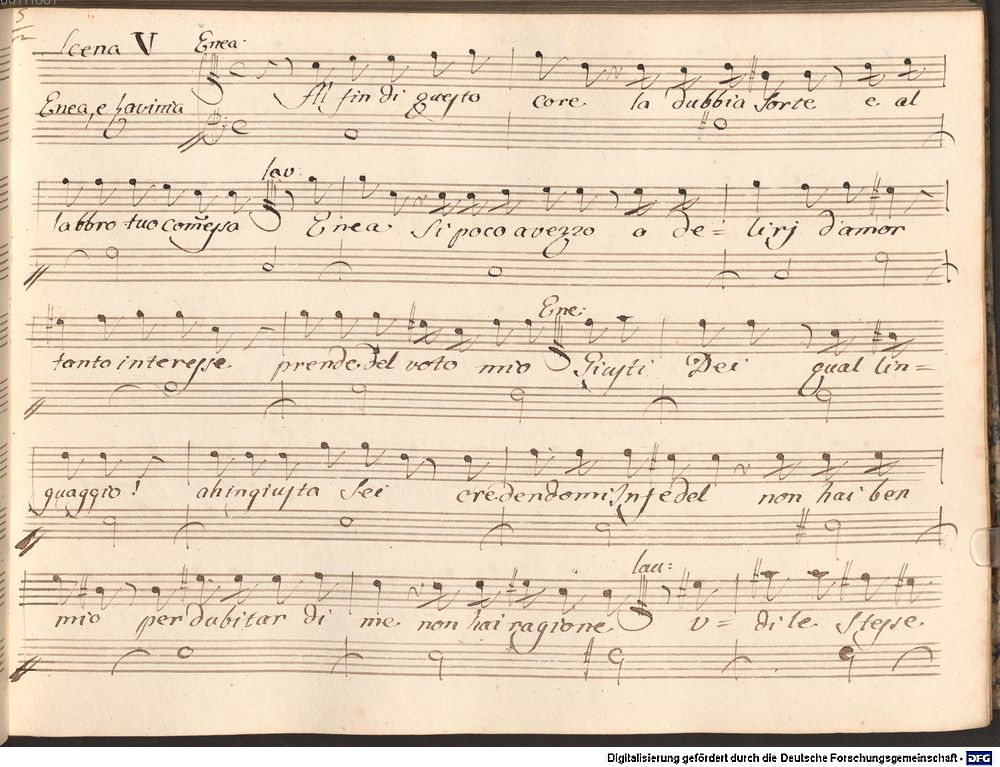 5
Scena V Enea.
Enea, e Lavinia Al fin di questo core la dubbia sorte e al
lav:
labbro tuo comessa Enea si poco avezzo a de= lirj d'amor
Ene:
tanto interesse prende del voto mio Giusti Dei qual lin=
guaggio! ah ingiusta sei credendomi Infedel non hai ben
lau:
mio per dubitar di me non hai ragione v= dite stesse
Digitalisierung gefördert durch die Deutsche Forschungsgemeinschaft - DFG